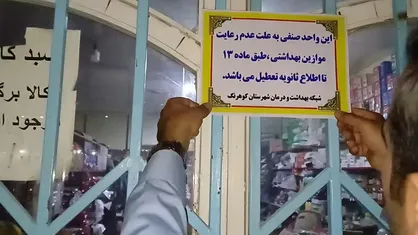 این واحد صنفی به علت عدم رعایت
موازین بهداشتی ،طبق ماده ۱۳
تا اطلاع ثانویه تعطیل می باشد.
شبکه بهداشت و درمان شهرستان کوهرنگ
سبد کا
کالا برگ
وجود ا